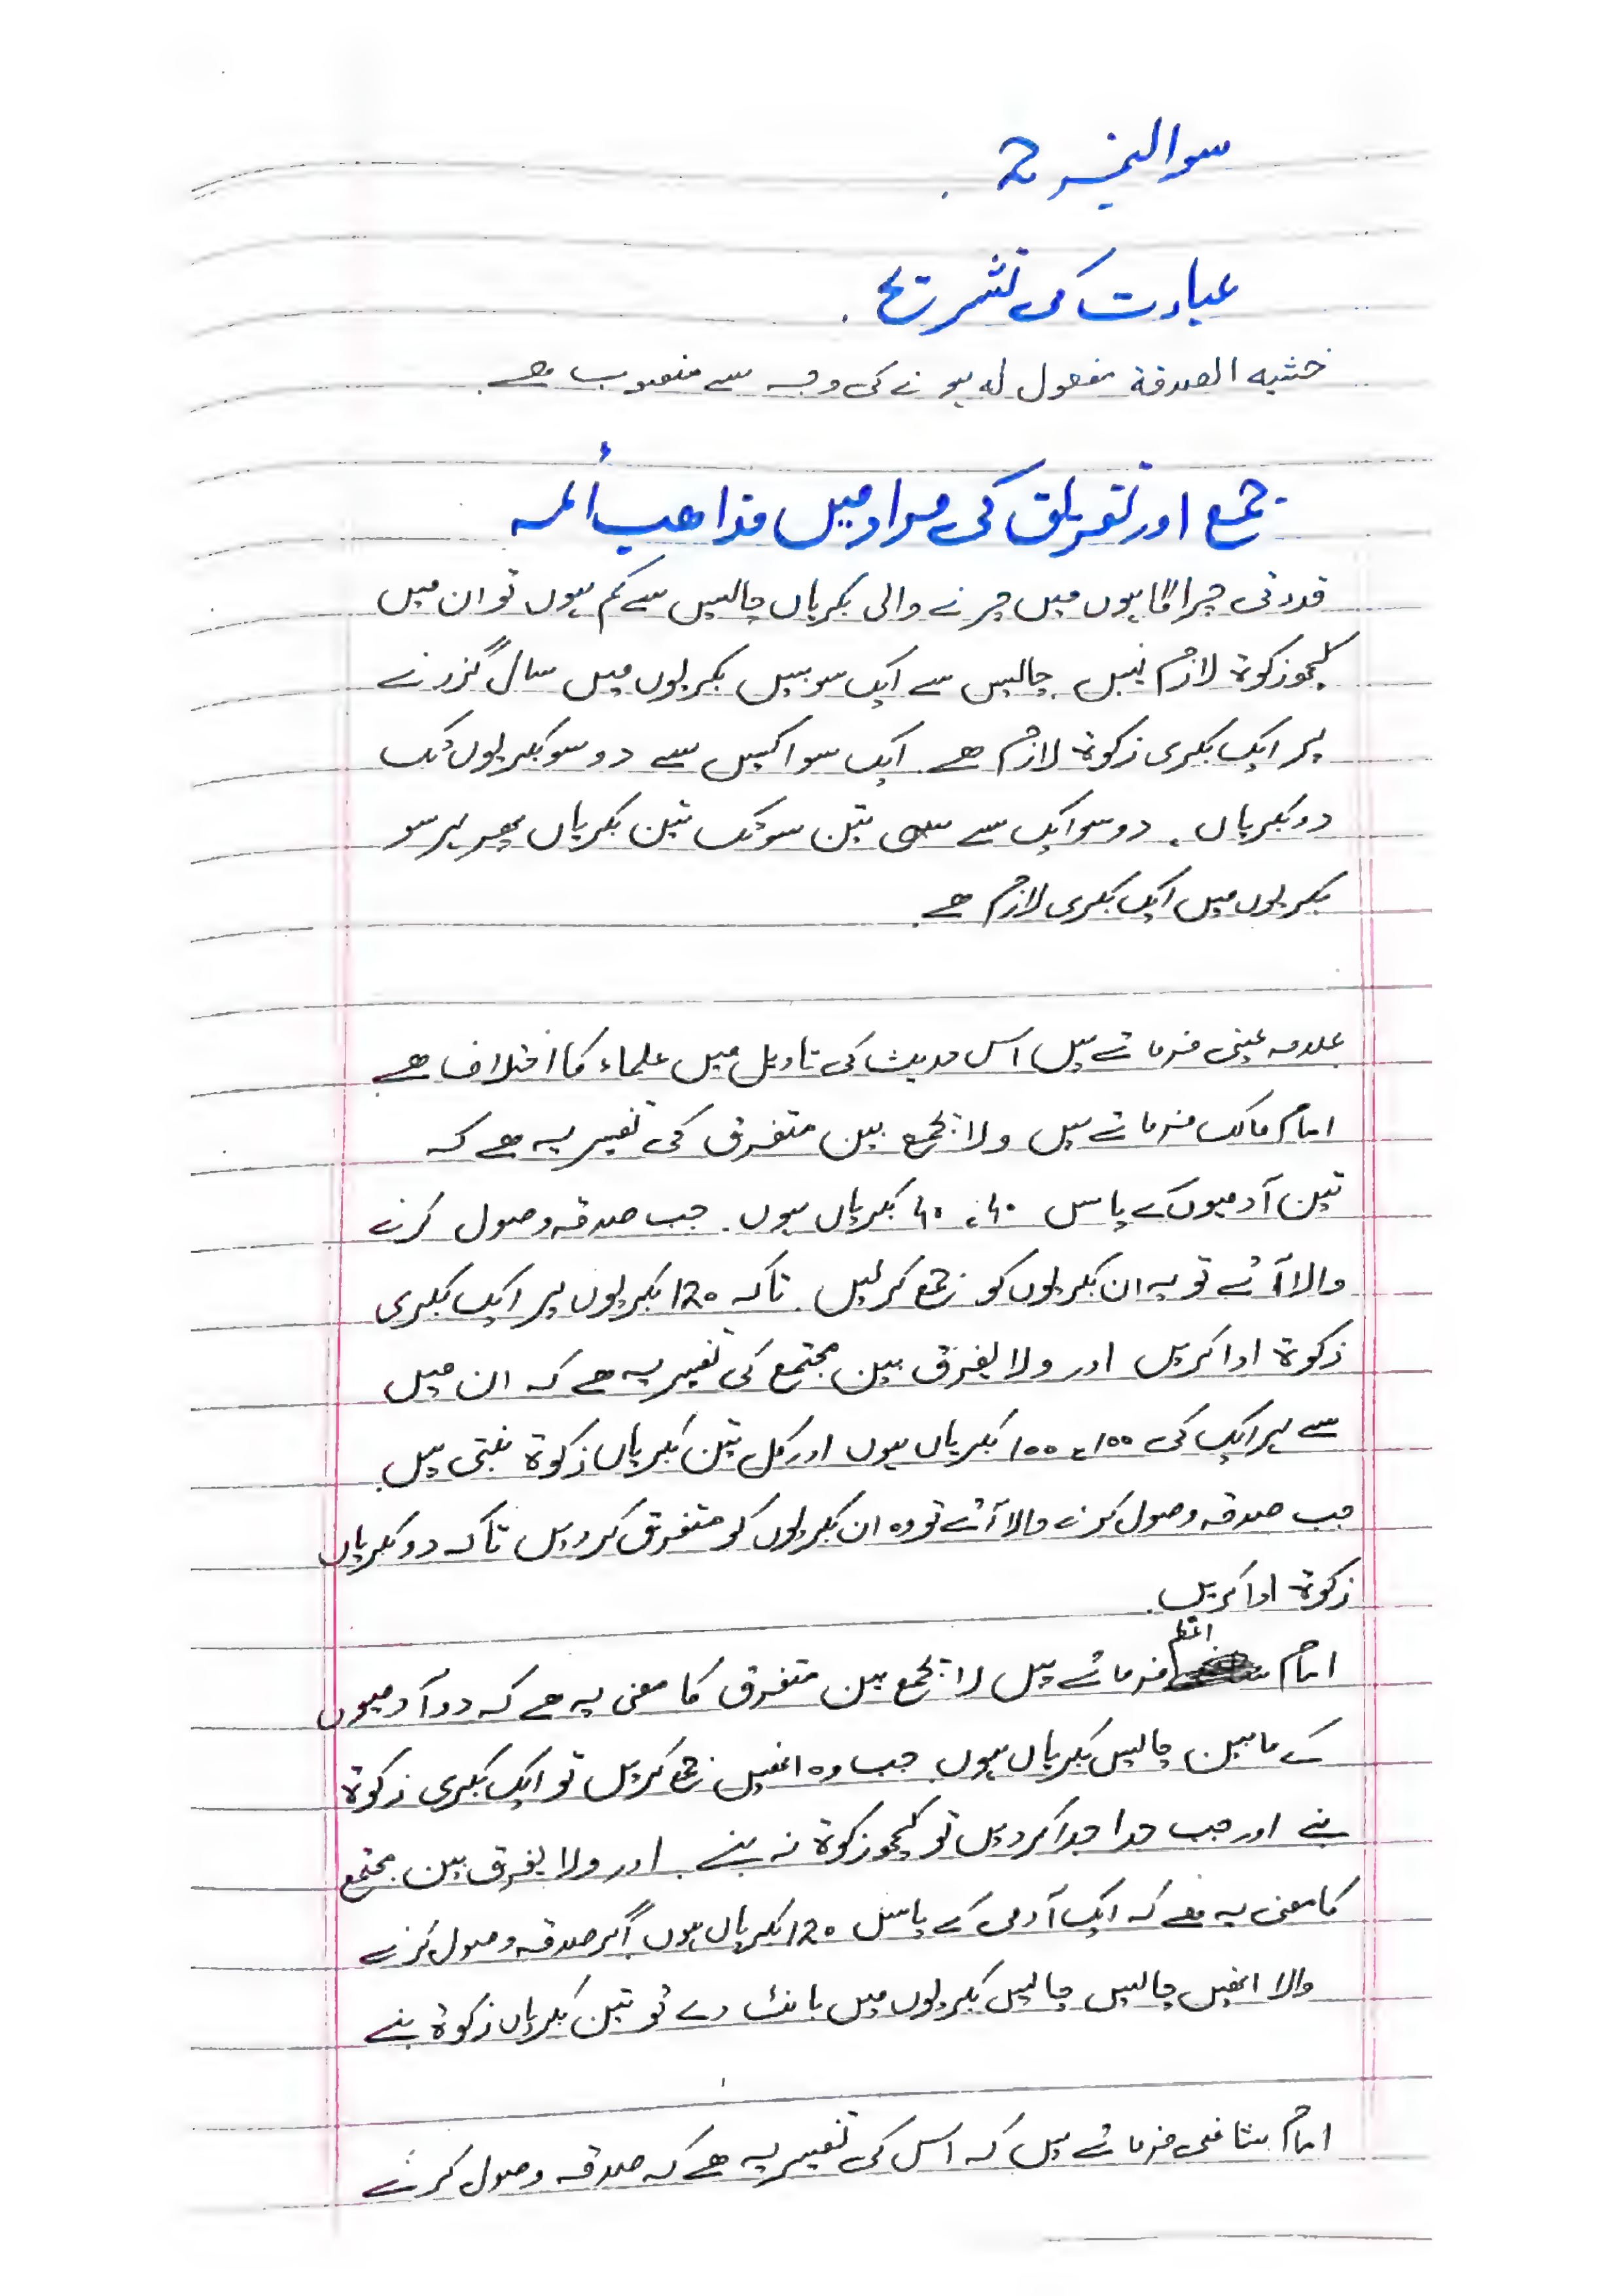 سوال نمبر 2
عبارت کی تشریح.
خشیه الصدقة مفعول له ہونے کی وجہ سے منصوب ھے.
جمع اور تفریق کی مراد میں مذاھب أئمہ
قدرتی چراگاہوں میں چرنے والی بکریاں چالیس سے کم ہوں تو ان میں
کچھ زکوة لازم نہیں. چالیس سے ایک سو بیس بکریوں میں سال گزرنے
پر ایک بکری زکوة لازم ھے. ایک سو اکیس سے دو سو بکریوں تک
دو بکریاں. دو سو ایک سے تین سو تک تین بکریاں پھر ہر سو
بکریوں میں ایک بکری لازم ھے.
علامہ عینی فرماتے ہیں اس حدیث کی تاویل میں علماء کا اختلاف ھے
امام مالک فرماتے ہیں ولا یجمع بین متفرق کی تفسیر یہ ھے کہ
تین آدمیوں کے پاس ۴۰، ۴۰ بکریاں ہوں. جب صدقہ وصول کرنے
والا آئے تو یہ ان بکریوں کو جمع کر لیں. تاکہ 120 بکریوں پر ایک بکری
زکوة ادا کریں اور ولا یفرق بین مجتمع کی تفسیر یہ ھے کہ ان میں
سے ہر ایک کی 100، 100 بکریاں ہوں اور کل تین بکریاں زکوة بنتی ہیں.
جب صدقہ وصول کرنے والا آئے تو وہ ان بکریوں کو متفرق کر دیں تاکہ دو بکریاں
زکوة ادا کریں.
امام اعظم فرماتے ہیں لا یجمع بین متفرق کا معنی یہ ھے کہ دو آدمیوں
کے مابین چالیس بکریاں ہوں. جب وہ انہیں جمع کریں تو ایک بکری زکوة
بنے اور جب جدا جدا کر دیں تو کچھ زکوة نہ بنے. اور ولا یفرق بین مجتمع
کا معنی یہ ھے کہ ایک آدمی کے پاس 120 بکریاں ہوں اگر صدقہ وصول کرنے
والا انہیں چالیس چالیس بکریوں میں بانٹ دے تو تین بکریاں زکوة بنے
امام شافعی فرماتے ہیں کہ اس کی تفسیر یہ ھے کہ صدقہ وصول کرنے